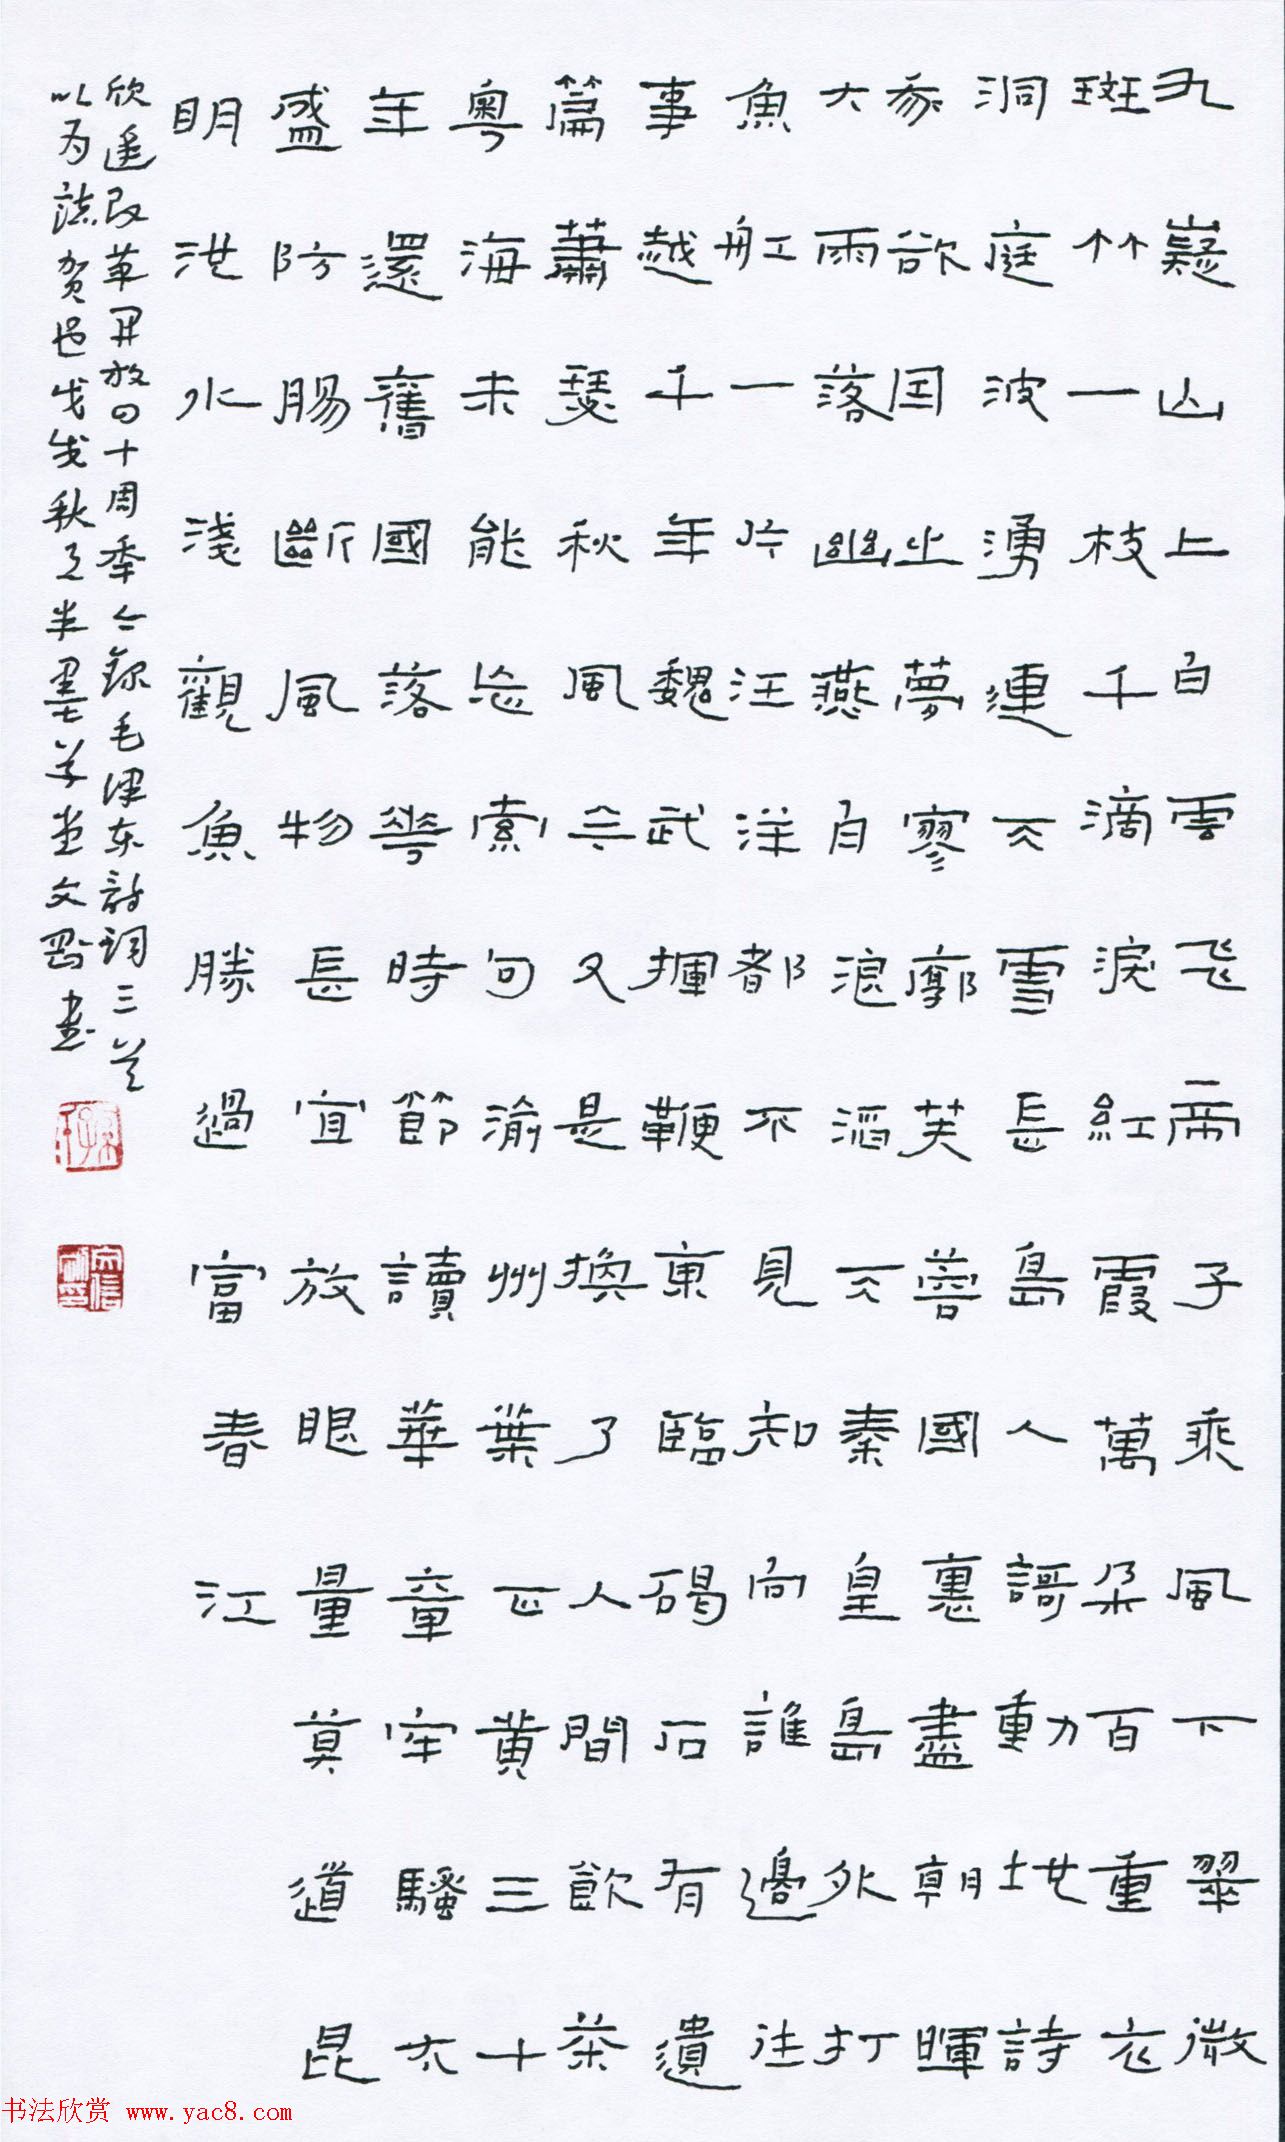 九嶷山上白雲飛帝子乘風下翠微
斑竹一枝千滴淚紅霞萬朵百重衣
洞庭波湧連天雪長島人謌動地詩
我欲因之夢寥廓芙蓉國裏盡朝暉
大雨落幽燕白浪滔天秦皇島外打
魚舡一片汪洋都不見知向誰邊往
事越千年魏武揮鞭東臨碣石有遺
篇蕭瑟秋風今又是換了人間飲茶
粵海未能忘索句渝州葉正黃三十
年還舊國落花時節讀華章牢騷太
盛防腸斷風物長宜放眼量莫道昆
明池水淺觀魚勝過富春江
欣逢改革开放四十周年今錄毛泽东詩詞三首
以为誌贺也戊戌秋之半墨堂文书
书法欣赏 www.yac8.com